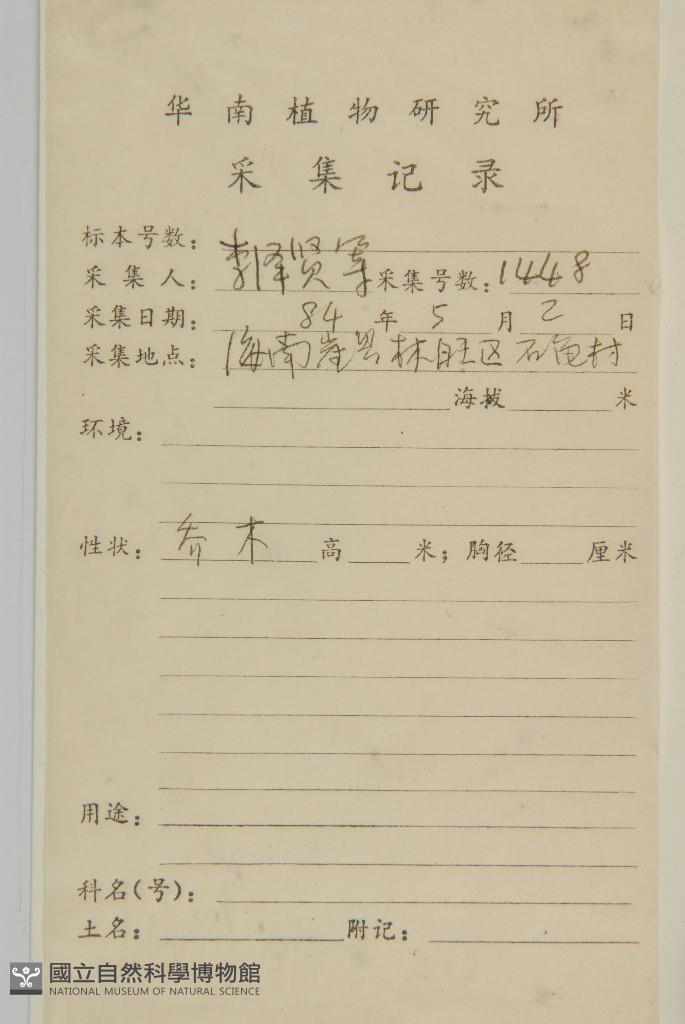 华南植物研究所
采集记录
标本号数：
采集人：李泽贤等 采集号数：1448
采集日期：84年5月2日
采集地点：海南崖县林旺区石龟村
海拔 米
环境：
性状：乔木 高 米；胸径 厘米
用途：
科名（号）：
土名： 附记：
國立自然科學博物館
NATIONAL MUSEUM OF NATURAL SCIENCE